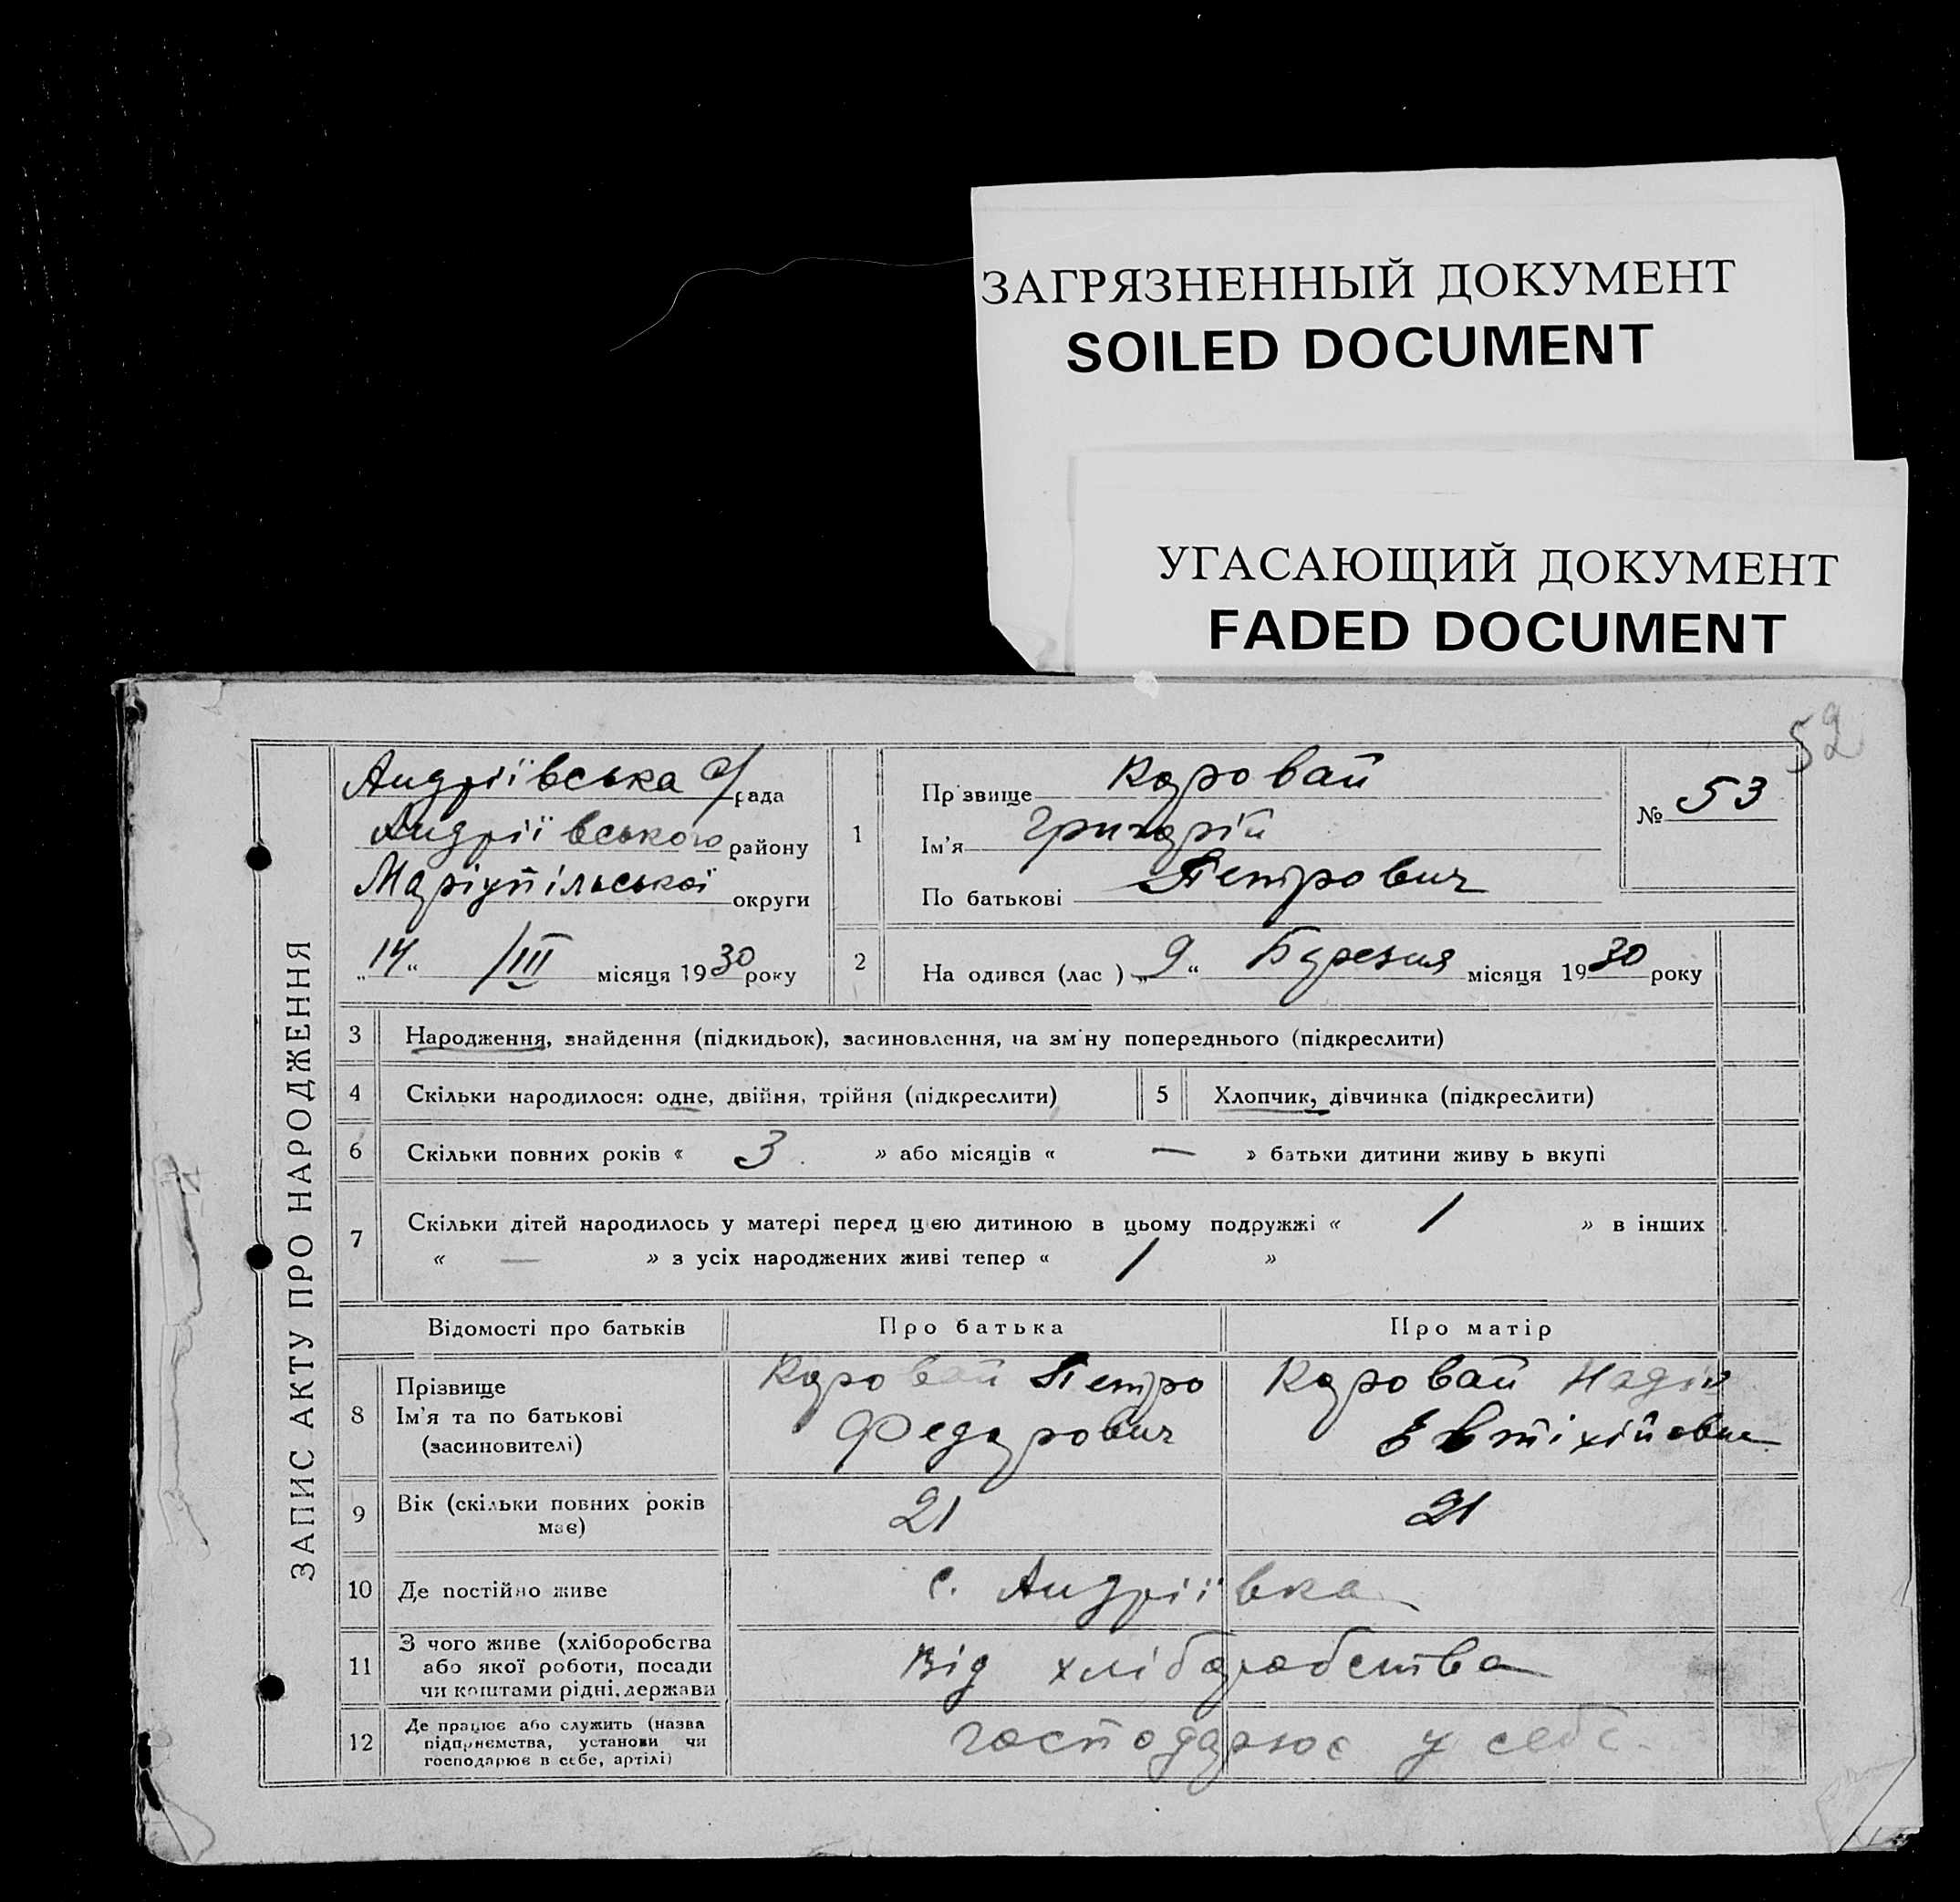 ЗАГРЯЗНЕННЫЙ ДОКУМЕНТ
SOILED DOCUMENT
УГАСАЮЩИЙ ДОКУМЕНТ
FADED DOCUMENT
52
ЗАПИС АКТУ ПРО НАРОДЖЕННЯ
Андріївська с/рада
Андріївського району
Маріупільської округи
„14“ /III місяця 1930 року
1
Прізвище Коровай
Ім'я Григорій
По батькові Петрович
№ 53
2 На одився (лас ) „9“ Березня місяця 1930 року
3 Народження, знайдення (підкидьок), засиновлення, на зм ну попереднього (підкреслити)
4 Скільки народилося: одне, двійня, трійня (підкреслити) 5 Хлопчик, дівчинка (підкреслити)
6 Скільки повних років « 3 » або місяців « — » батьки дитини живу ь вкупі
7 Скільки дітей народилось у матері перед цією дитиною в цьому подружжі « 1 » в інших
« — » з усіх народжених живі тепер « 1 »
Відомості про батьків Про батька Про матір
8 Прізвище
Ім'я та по батькові
(засиновителі)
Коровай Петро
Федорович
Коровай Надія
Евтіхійовна
9 Вік (скільки повних років
має) 21 21
10 Де постійно живе с. Андріївка
11 З чого живе (хліборобства
або якої роботи, посади
чи коштами рідні, держави
Від хліборобства
12 Де працює або служить (назва
підприємства, установи чи
господарює в себе, артілі)
господарює у себе.